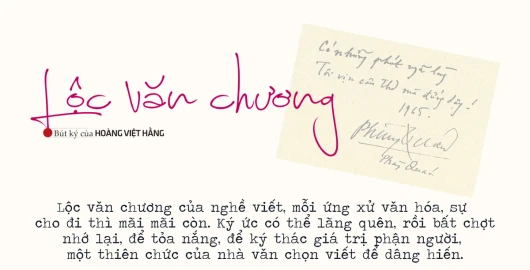 Có những phút ngã lòng
Tôi vịn câu thơ mà đứng dậy!
Phùng Quán
Phùng Quán
Lộc văn chương
Bút ký của HOÀNG VIỆT HẰNG
Lộc văn chương của nghề viết, mỗi ứng xử văn hóa, sự
cho đi thì mãi mãi còn. Ký ức có thể lãng quên, rồi bất chợt
nhớ lại, để tỏa nắng, để ký thác giá trị phận người,
một thiên chức của nhà văn chọn viết để dâng hiến.